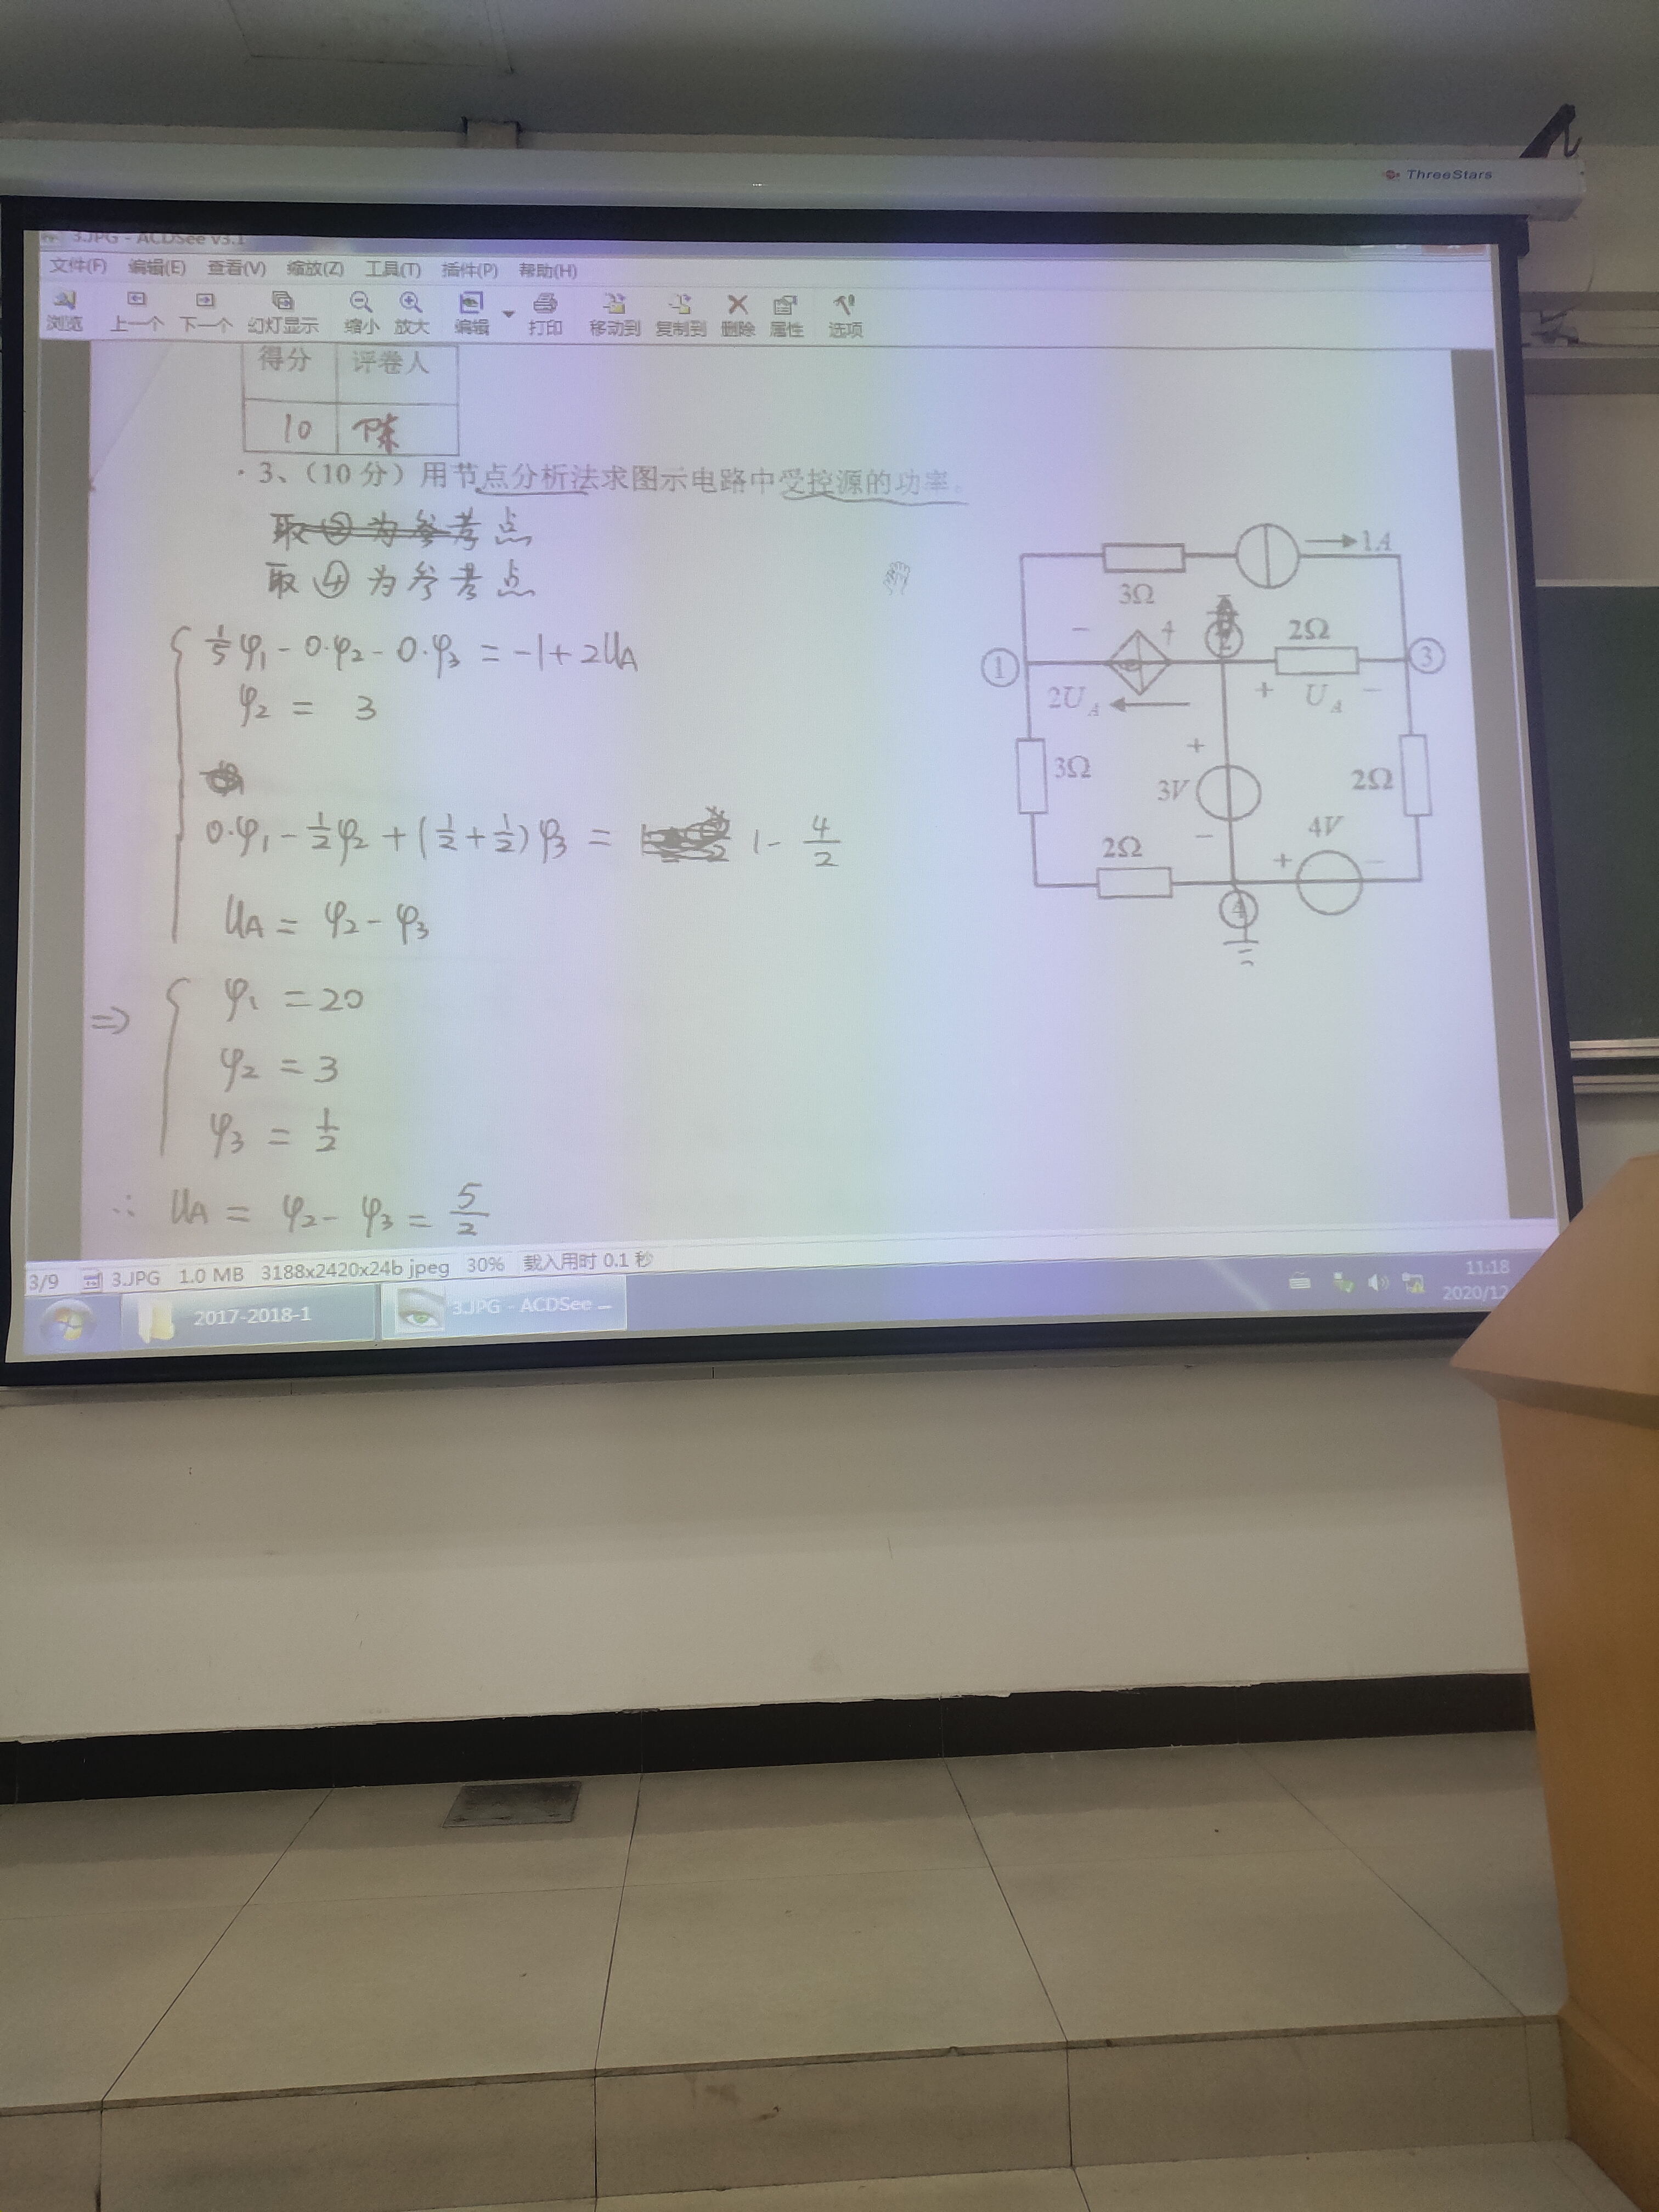 ThreeStars
3.JPG - ACDSee v3.1
文件(F) 编辑(E) 查看(V) 缩放(Z) 工具(T) 插件(P) 帮助(H)
浏览 上一个 下一个 幻灯显示 缩小 放大 编辑 打印 移动到 复制到 删除 属性 选项
得分 评卷人
10 陈
3、（10 分）用节点分析法求图示电路中受控源的功率。
取②为参考点
取④为参考点
1/5 φ1 - 0·φ2 - 0·φ3 = -1 + 2UA
φ2 = 3
0·φ1 - 1/2 φ2 + (1/2 + 1/2) φ3 = 1 - 4/2
UA = φ2 - φ3
⇒ φ1 = 20
φ2 = 3
φ3 = 1/2
∴ UA = φ2 - φ3 = 5/2
1A
3Ω
- + 2Ω
① ③
2UA + UA -
3Ω + 3V - 2Ω
4V
2Ω + -
④
3/9 3.JPG 1.0 MB 3188x2420x24b jpeg 30% 载入用时 0.1 秒
2017-2018-1 3.JPG - ACDSee ...
11:18
2020/12